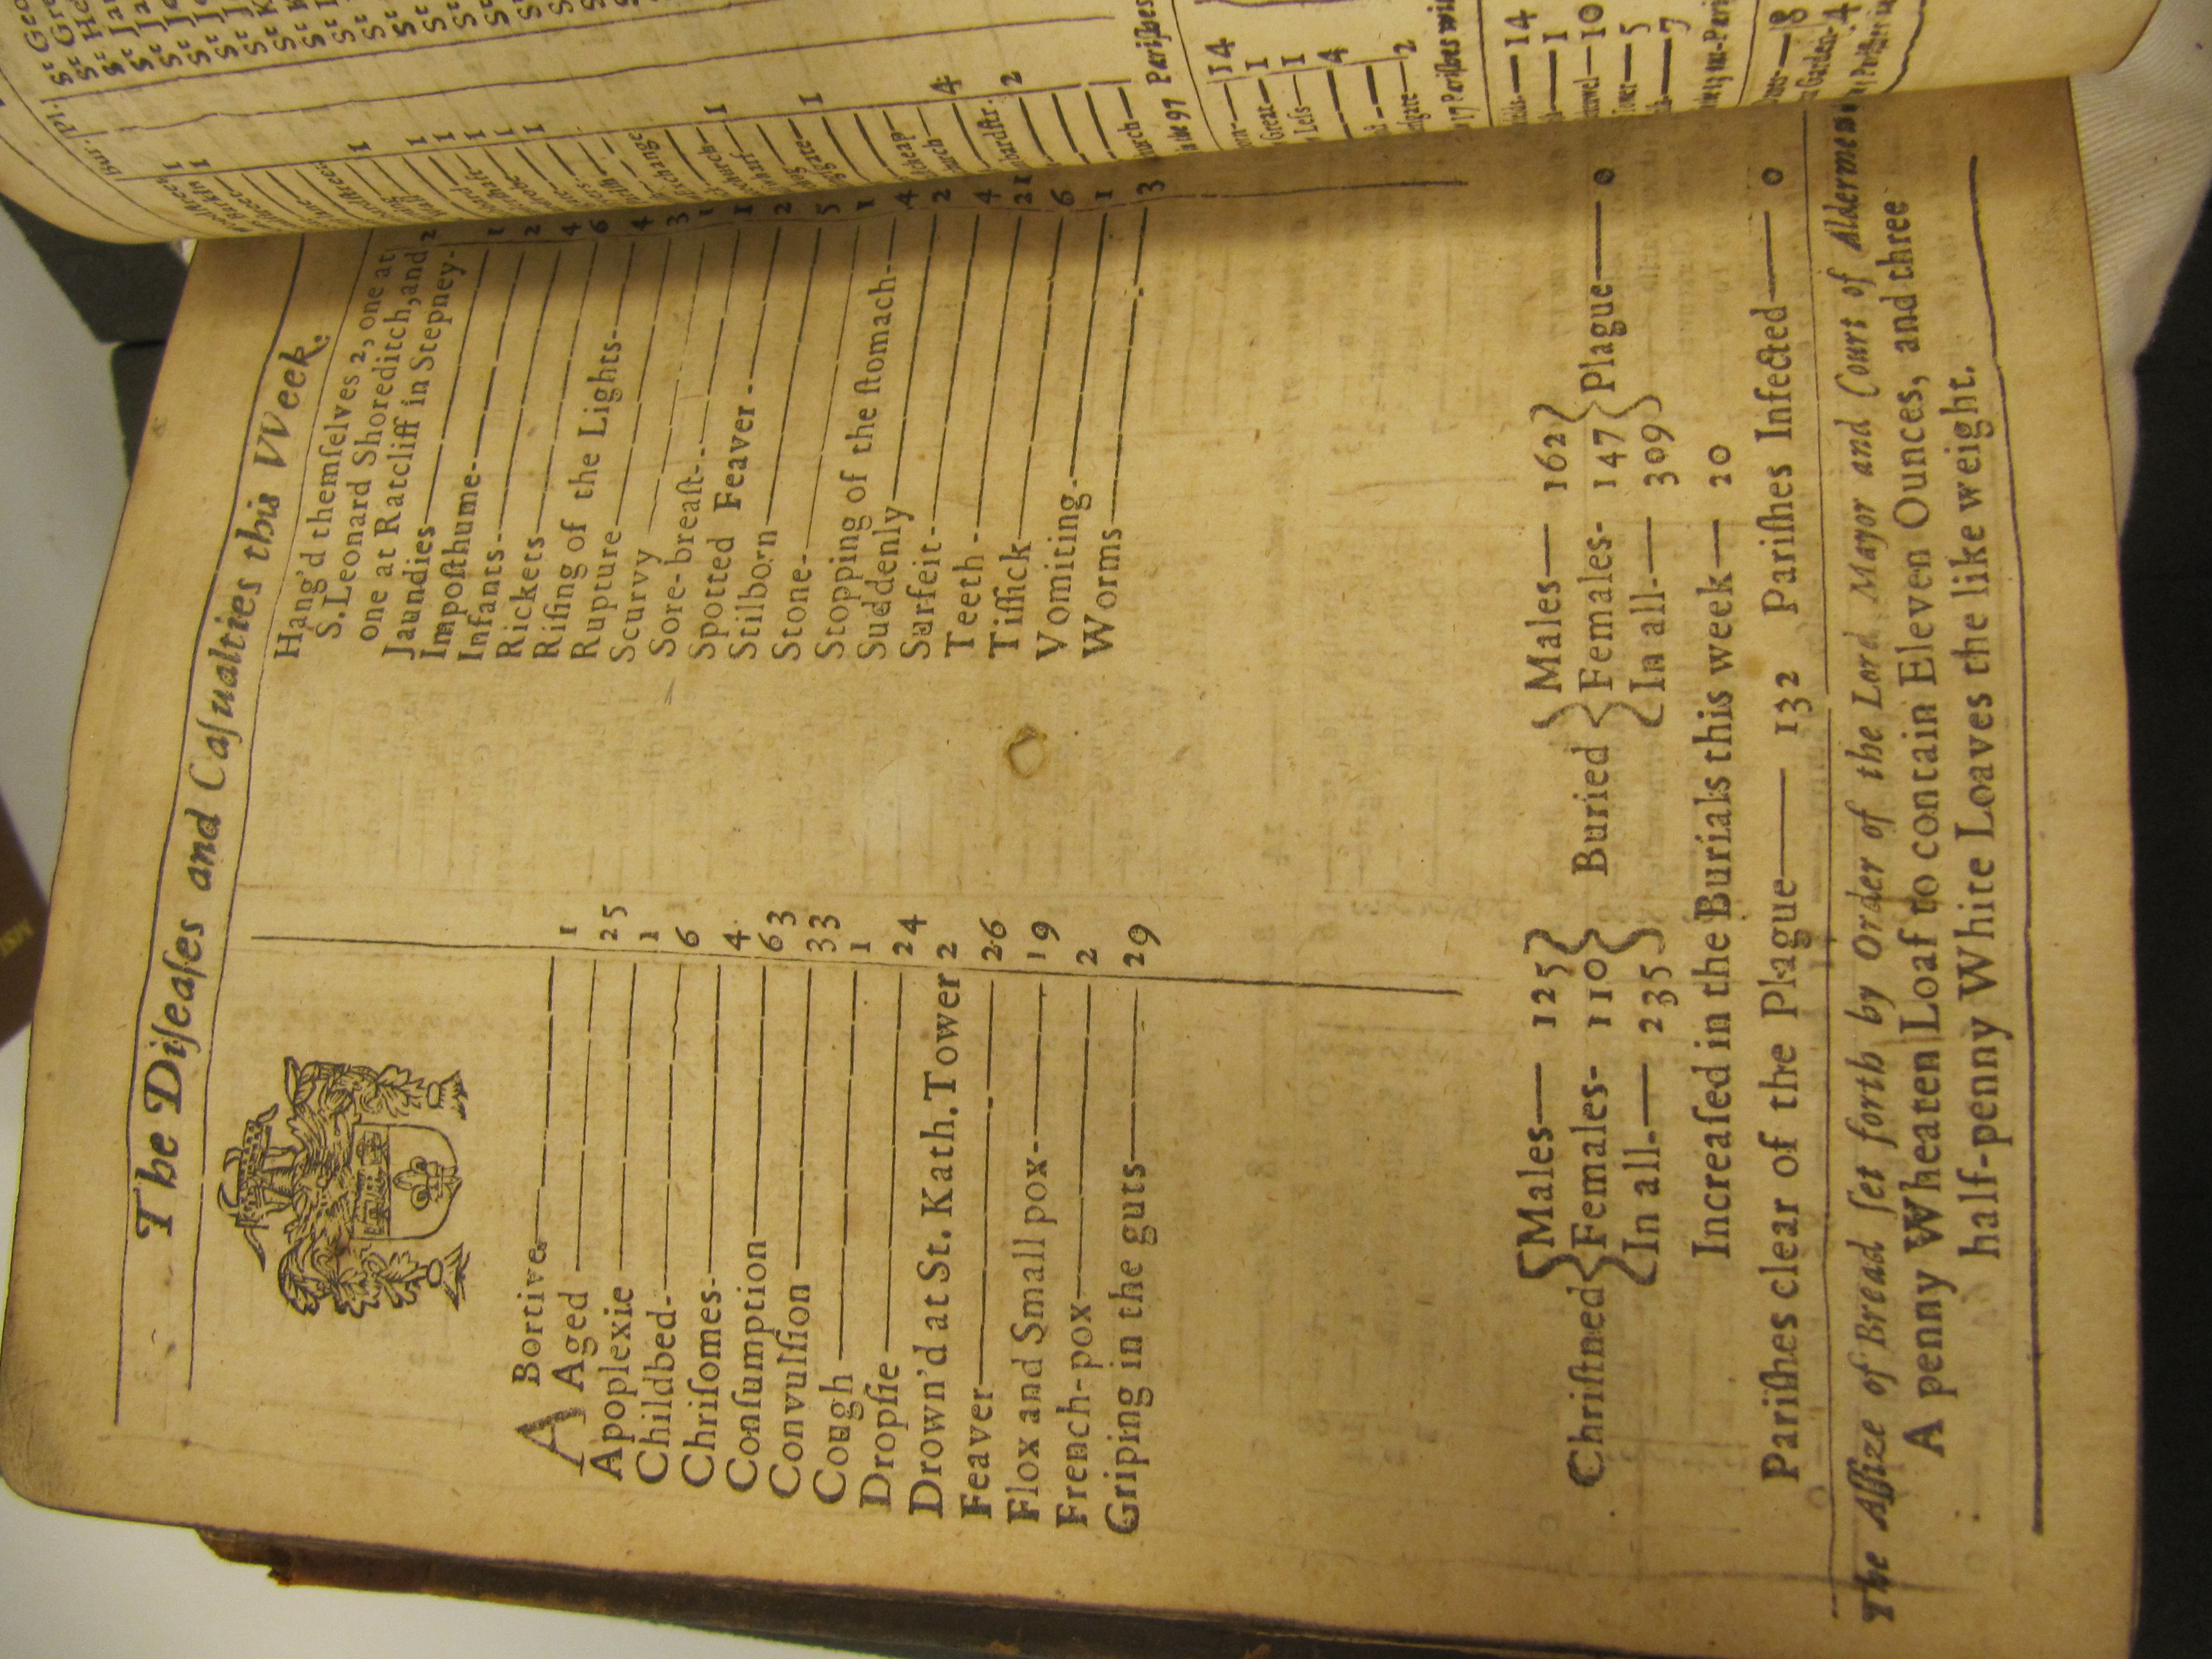 The Diſeaſes and Caſualties this VVeek.
A Bortive 1
Aged 25
Apoplexie 1
Childbed 6
Chriſomes 4
Conſumption 63
Convulſion 33
Cough 1
Dropſie 24
Drown'd at St. Kath. Tower 2
Feaver 26
Flox and Small pox 19
French-pox 2
Griping in the guts 29
Hang'd themſelves 2, one at
S. Leonard Shoreditch, and
one at Ratcliff in Stepney- 2
Jaundies 1
Impoſthume 2
Infants 4
Rickets 6
Riſing of the Lights 4
Rupture 3
Scurvy 1
Sore-breaſt 1
Spotted Feaver 2
Stilborn 5
Stone 1
Stopping of the ſtomach 4
Suddenly 2
Surfeit 4
Teeth 21
Tiſſick 6
Vomiting 1
Worms 3
Chriſtned { Males— 125 } Buried { Males— 162 } Plague— 0
Females- 110 Females- 147
In all— 235 In all— 309
Increaſed in the Burials this week— 20
Pariſhes clear of the Plague— 132 Pariſhes Infected— 0
The Aſſize of Bread ſet forth by Order of the Lord Mayor and Court of Aldermen,
A penny Wheaten Loaf to contain Eleven Ounces, and three
half-penny White Loaves the like weight.